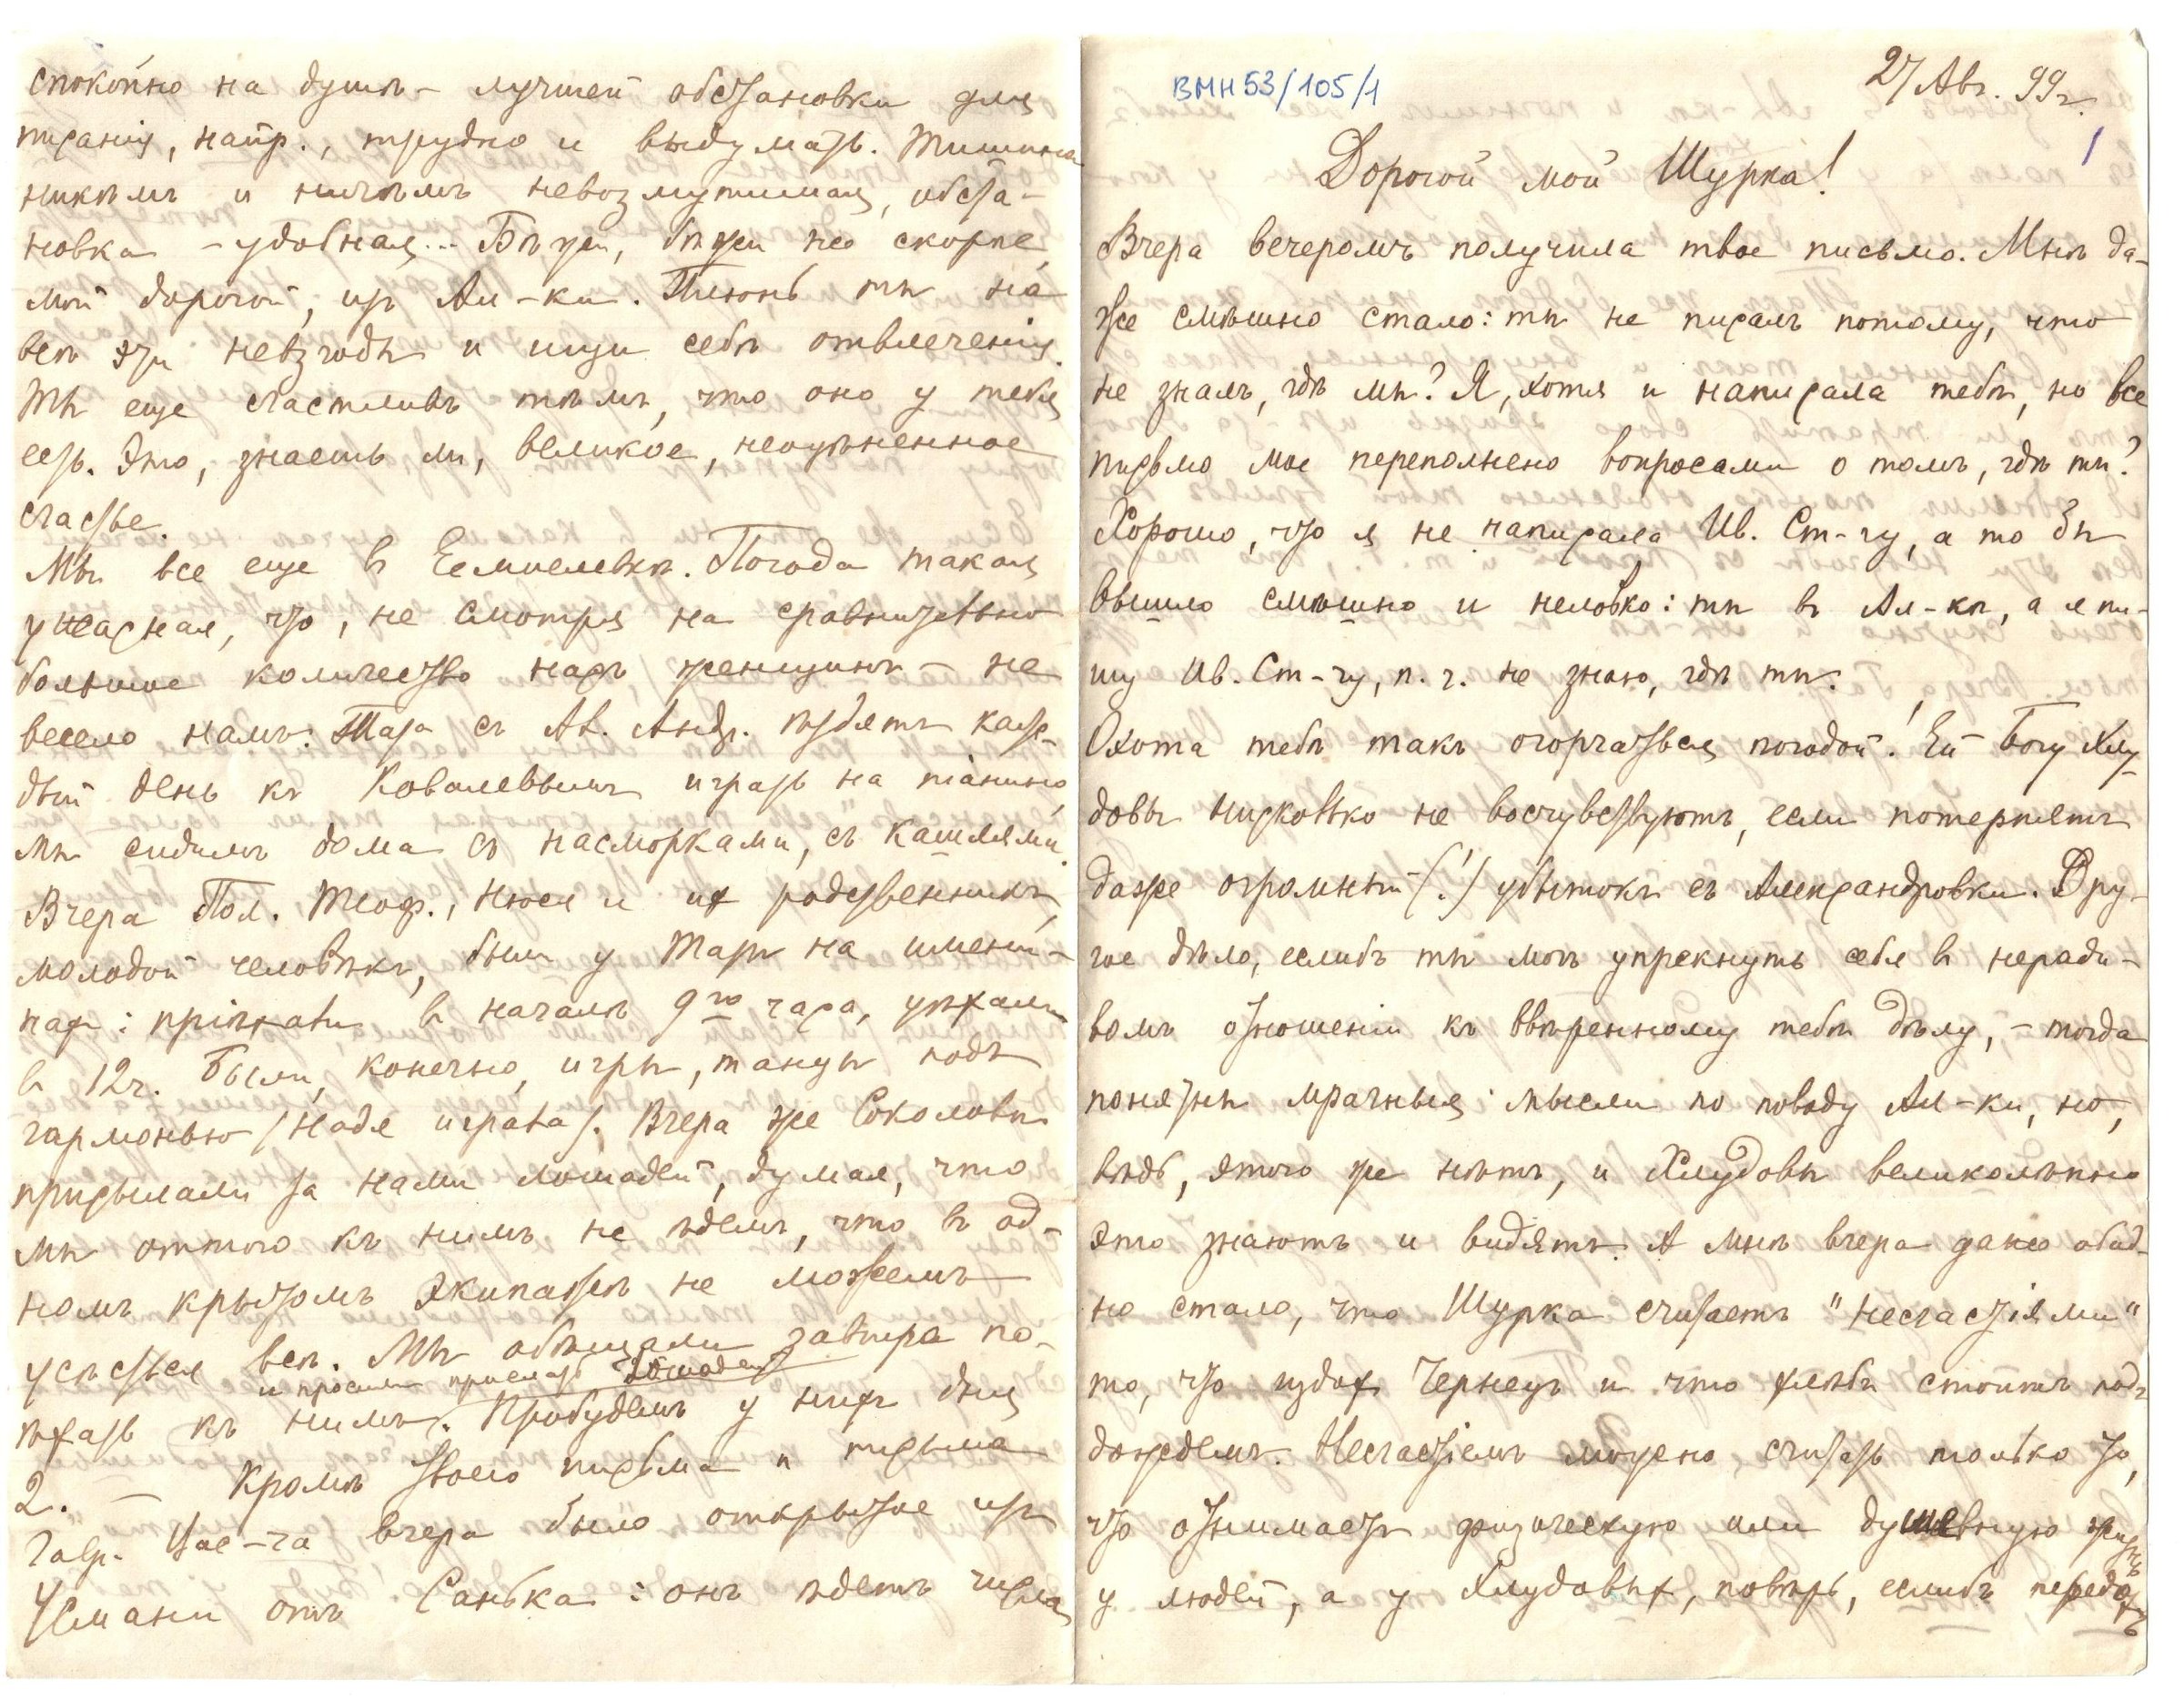 ВМН 53/105/1
27 Авг. 99 г.
1
Дорогой мой Шурка!
Вчера вечеромъ получила твое письмо. Мнѣ да-
же смѣшно стало: ты не писалъ потому, что
не зналъ, гдѣ мы? Я, хотя и написала тебѣ, но все
письмо мое переполнено вопросами о томъ, гдѣ ты?
Хорошо, что я не написала Ив. Ст-чу, а то бы
вышло смѣшно и неловко: ты въ Ал-кѣ, а я пи-
шу Ив. Ст-чу, п. ч. не знаю, гдѣ ты.
Охота тебѣ такъ огорчаться погодой! Ей Богу Хлу-
довы нисколько не восчувствуютъ, если потерпятъ
даже огромный (!) убытокъ съ Александровки. Дру-
гое дѣло, еслибъ ты могъ упрекнуть себя въ неради-
вомъ отношеніи къ ввѣренному тебѣ дѣлу, – тогда
понятны мрачныя мысли по поводу Ал-ки, но,
вѣдь, этого же нѣтъ, и Хлудовы великолѣпно
это знаютъ и видятъ. А мнѣ вчера даже обид-
но стало, что Шурка считаетъ "несчастіями"
то, что издох Чернецъ и что хлѣбъ стоитъ подъ
дождемъ. Несчастіемъ можно считать только то,
что отнимаетъ физическую или душевную жизнь
у людей, а у Хлудовых, повѣрь, еслибъ передохъ
спокойно на душѣ – лучшей обстановки для
писанія, напр., трудно и выдумать. Тишина
никѣмъ и ничѣмъ невозмутимая, обста-
новка – удобная... Бѣжи, бѣжи по скорѣе,
мой дорогой, изъ Ал-ки. Плюнь ты на
всѣ эти невзгоды и ищи себѣ отвлеченія.
Ты еще счастливъ тѣмъ, что оно у тебя
есть. Это, знаешь ли, великое, неоцѣненное
счастье.
Мы все еще въ Еемшелевкѣ. Погода такая
ужасная, что, не смотря на сравнительно
большое количество насъ женщинъ – не
весело намъ. Таза съ Ав. Андр. ѣздятъ каж-
дый день къ Ковалевымъ играть на піанино,
мы сидимъ дома съ насморками, съ кашлями.
Вчера Пол. Теоф., Нюся и их родственникъ,
молодой человѣкъ, были у Тазы на имени-
нах: пріѣхали въ началѣ 9го часа, уѣхали
в 12 ч. Были, конечно, игры, танцы подъ
гармонью (Надя играла). Вчера же Соколовы
присылали за нами лошадей, думая, что
мы оттого къ нимъ не ѣдемъ, что въ од-
номъ крытомъ экипажѣ не можемъ
усѣсться всѣ. Мы обѣщали завтра по-
и просили прислать лошадей
ѣхать къ нимъ. Пробудемъ у нихъ дня
2. – Кромѣ твоего письма и письма
Гавр. Иае-ча вчера было открытое изъ
Усмани отъ Санька: онъ ѣдетъ числа